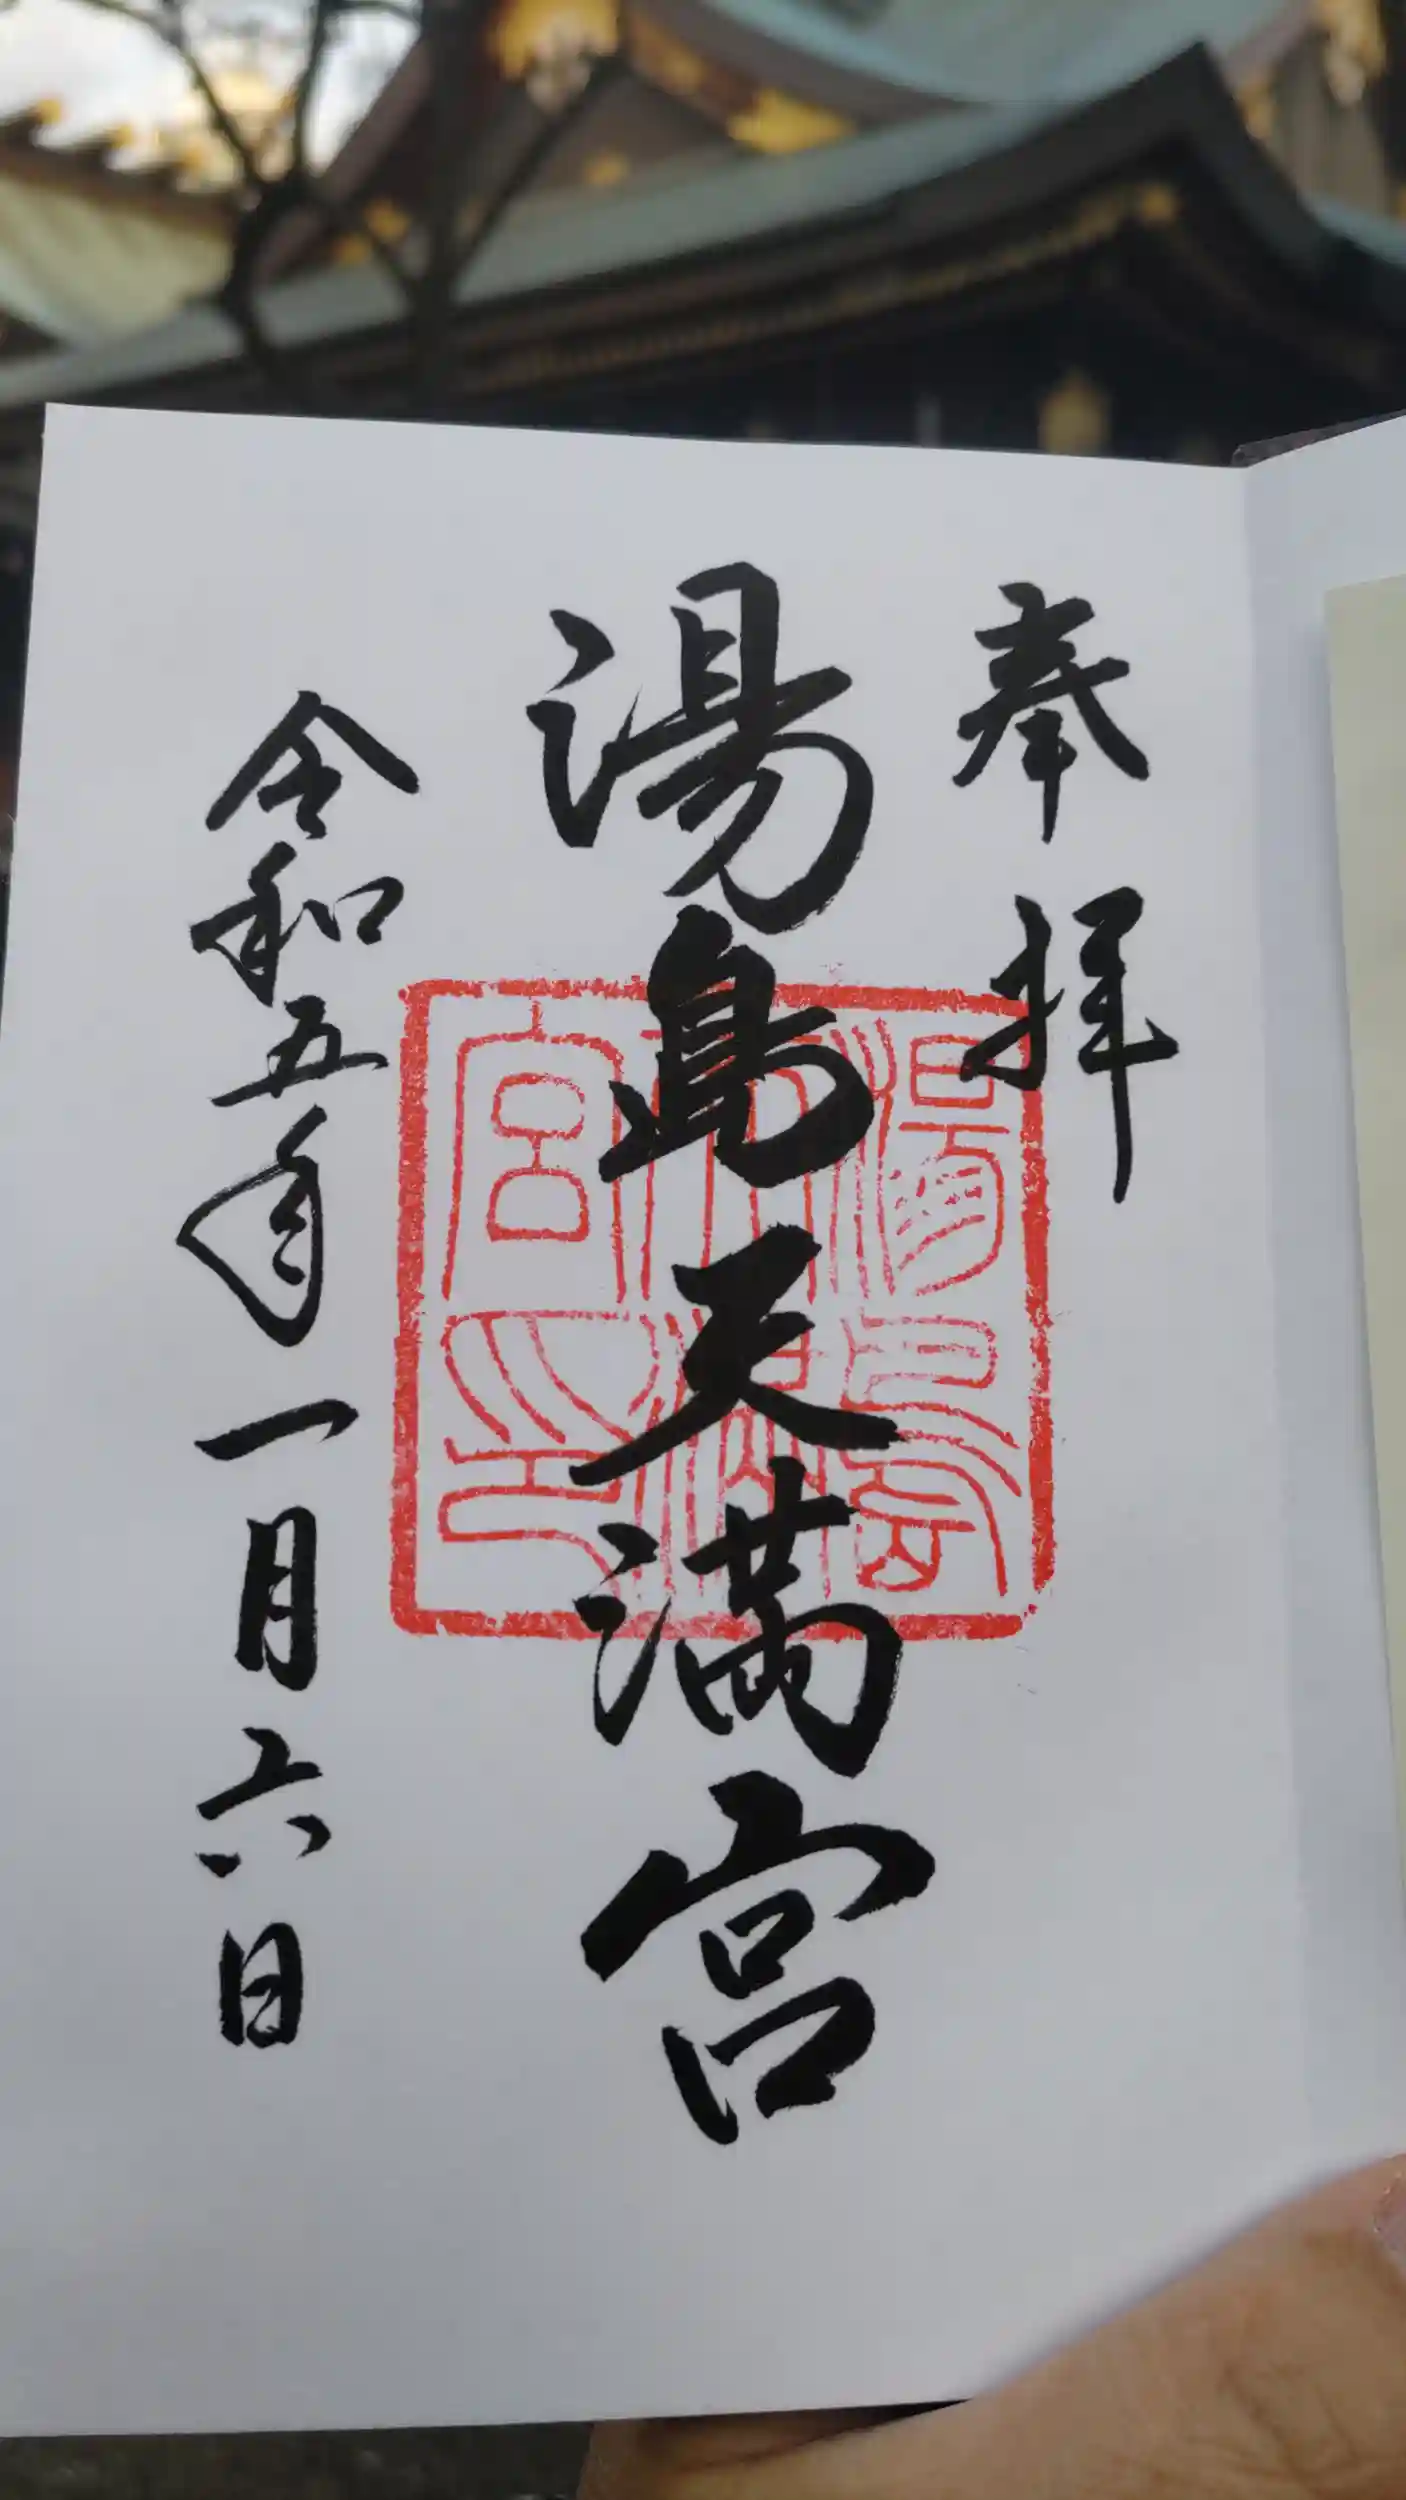 奉拝
湯島天満宮
令和五年一月六日
湯島天満宮印